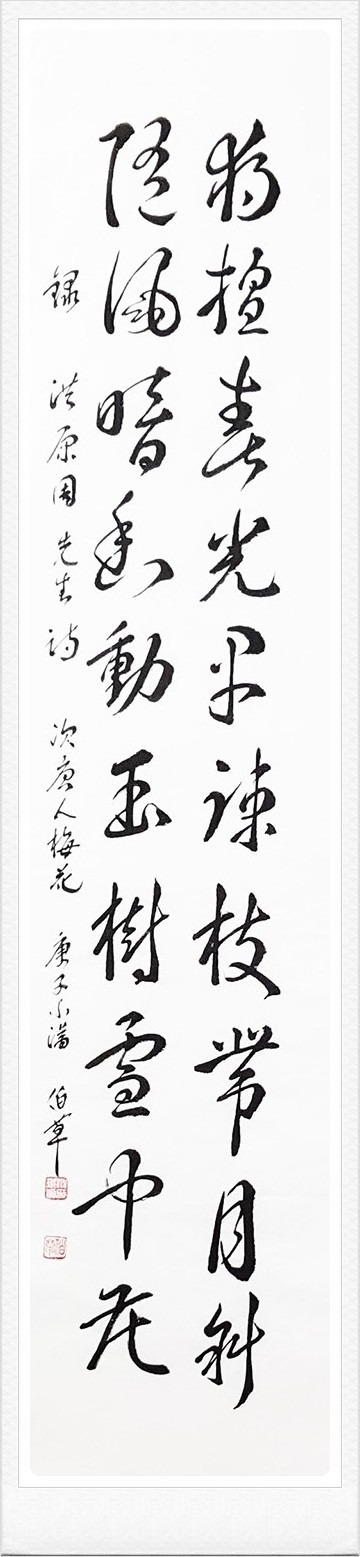 獨擅春光早疎枝帶月斜
隨風暗香動玉樹雪中花
錄 洪原周先生詩 次唐人梅花 庚子小滿 伯草